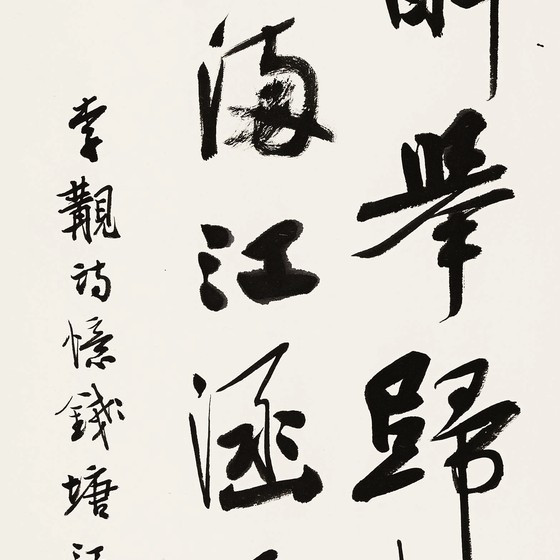 舉歸
滿江涵
李覯詩憶錢塘江